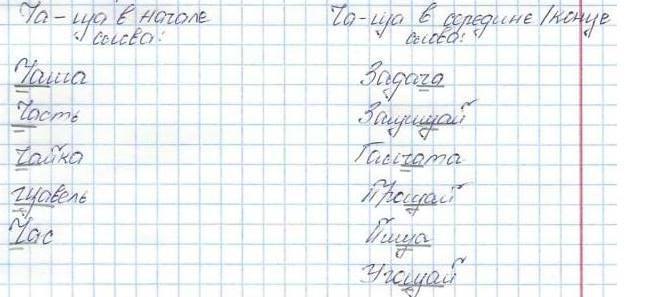 Ча-ща в начале
слова:
Чаша
Часть
Чайка
щавель
Час
Ча-ща в середине/конце
слова:
Задача
Защищай
Галчата
Прощай
Пища
Угощай